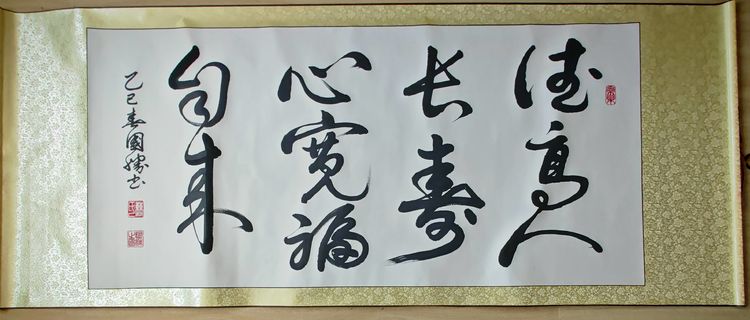 德高人
长寿
心宽福
自来
乙巳春國勝书